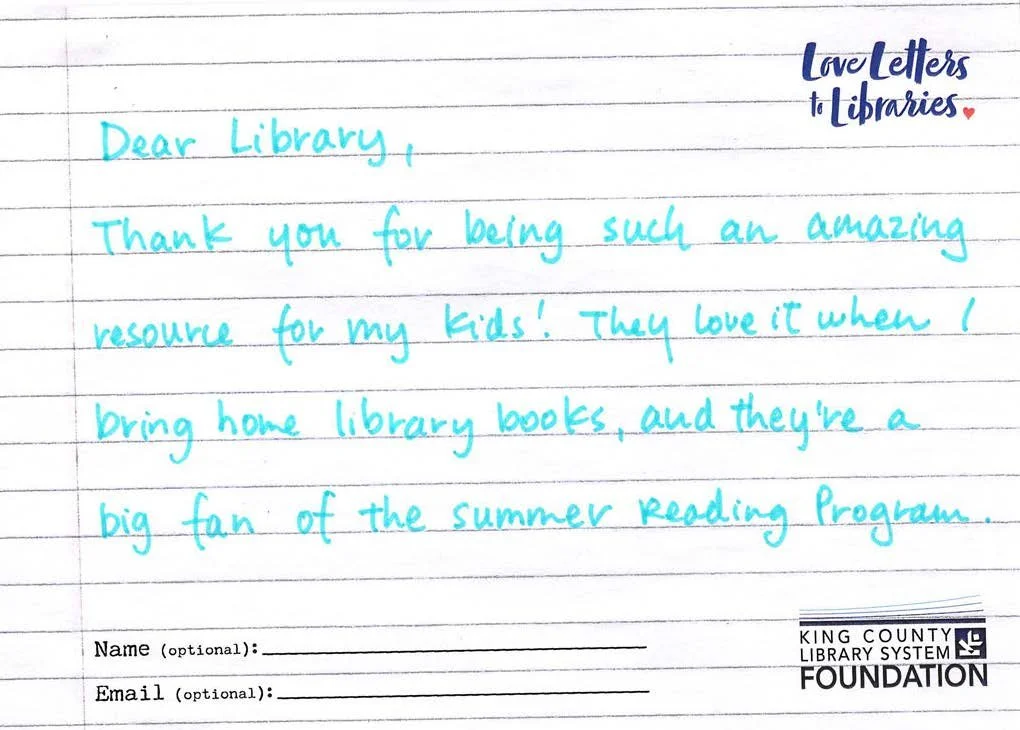 Love Letters
to Libraries
Dear Library,
Thank you for being such an amazing
resource for my kids! They love it when I
bring home library books, and they're a
big fan of the summer Reading Program.
Name (optional):
Email (optional):
KING COUNTY
LIBRARY SYSTEM
FOUNDATION